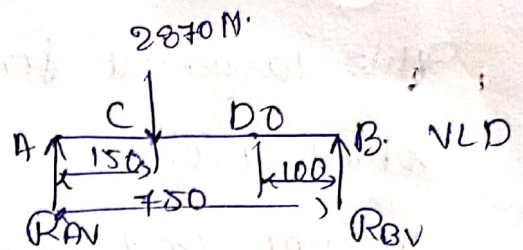 2870 N.
A C D O B. VLD
150 100
750
RAV RBV